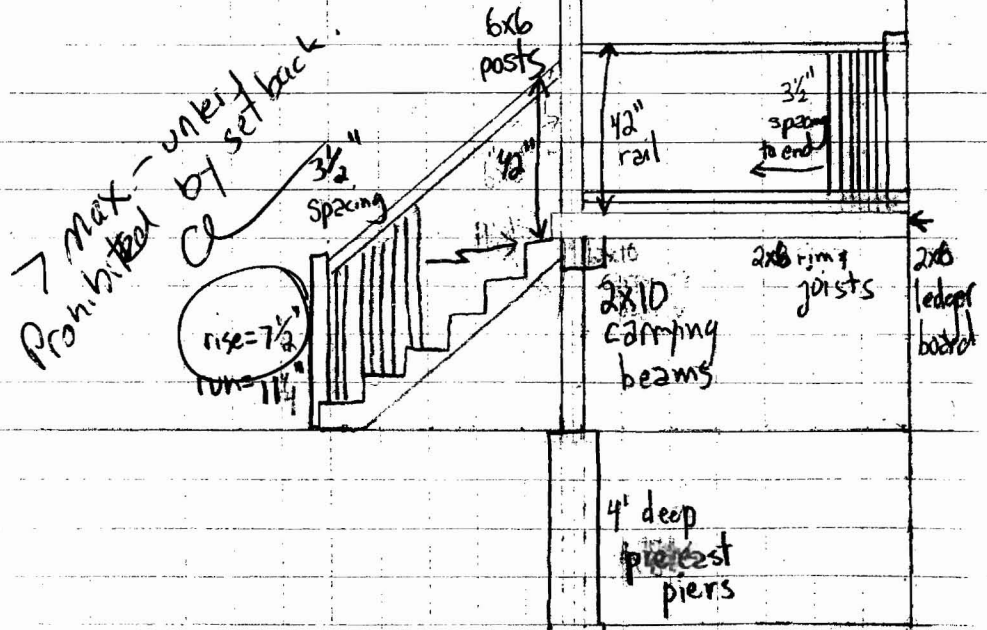 6x6
posts
7 Max - unless
Prohibited by setback.
3½"
spacing
42"
42"
rail
3½"
spacing
to end
rise=7½"
run=11¼"
2x10
carrying
beams
2x8 rim &
joists
2x8
ledger
board
4' deep
precast
piers